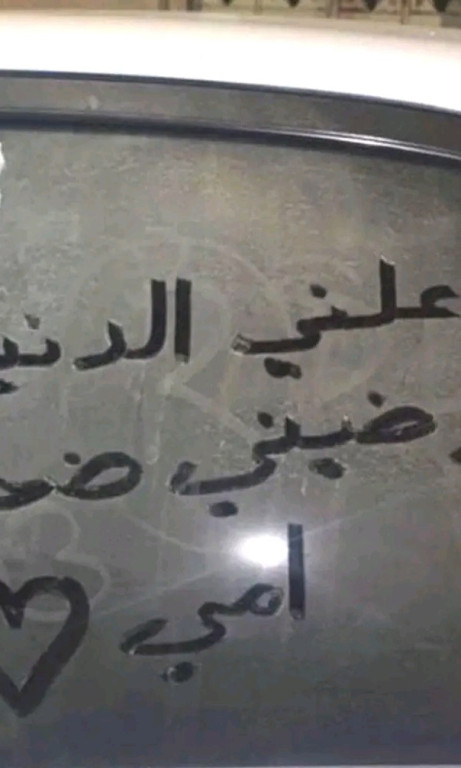 علني الدنيـ
رضيني ضحـ
امي